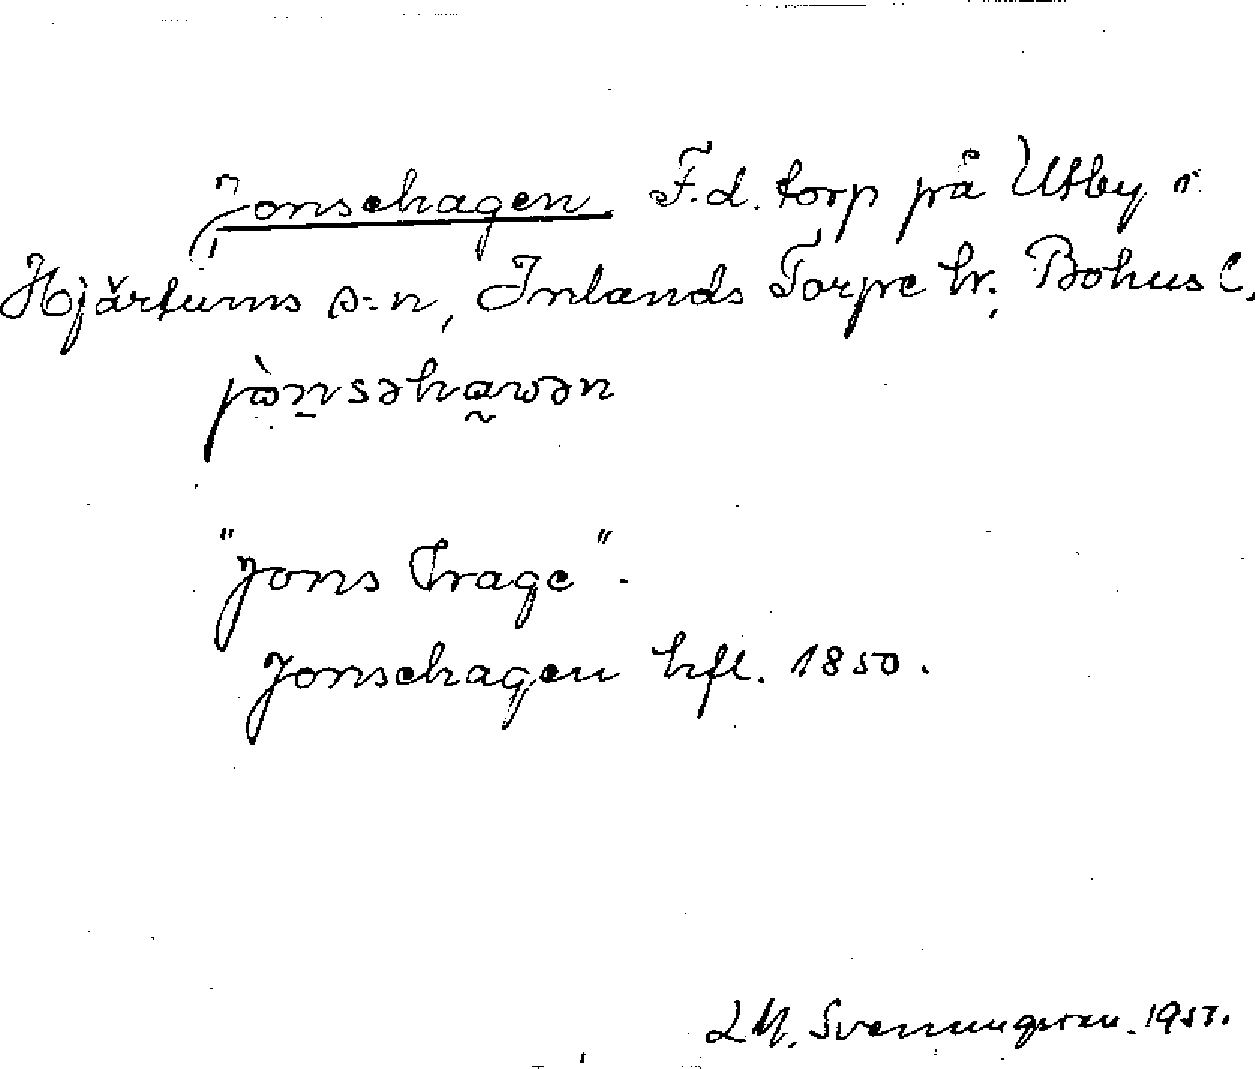 Jonsehagen. F.d. torp på Utby i
Hjärtums s-n, Inlands Torpe hr, Bohusl.
jò̱nsəhawən
"Jons hage".
Jonsehagen hfl. 1850.
L M. Svenungsson. 1957.